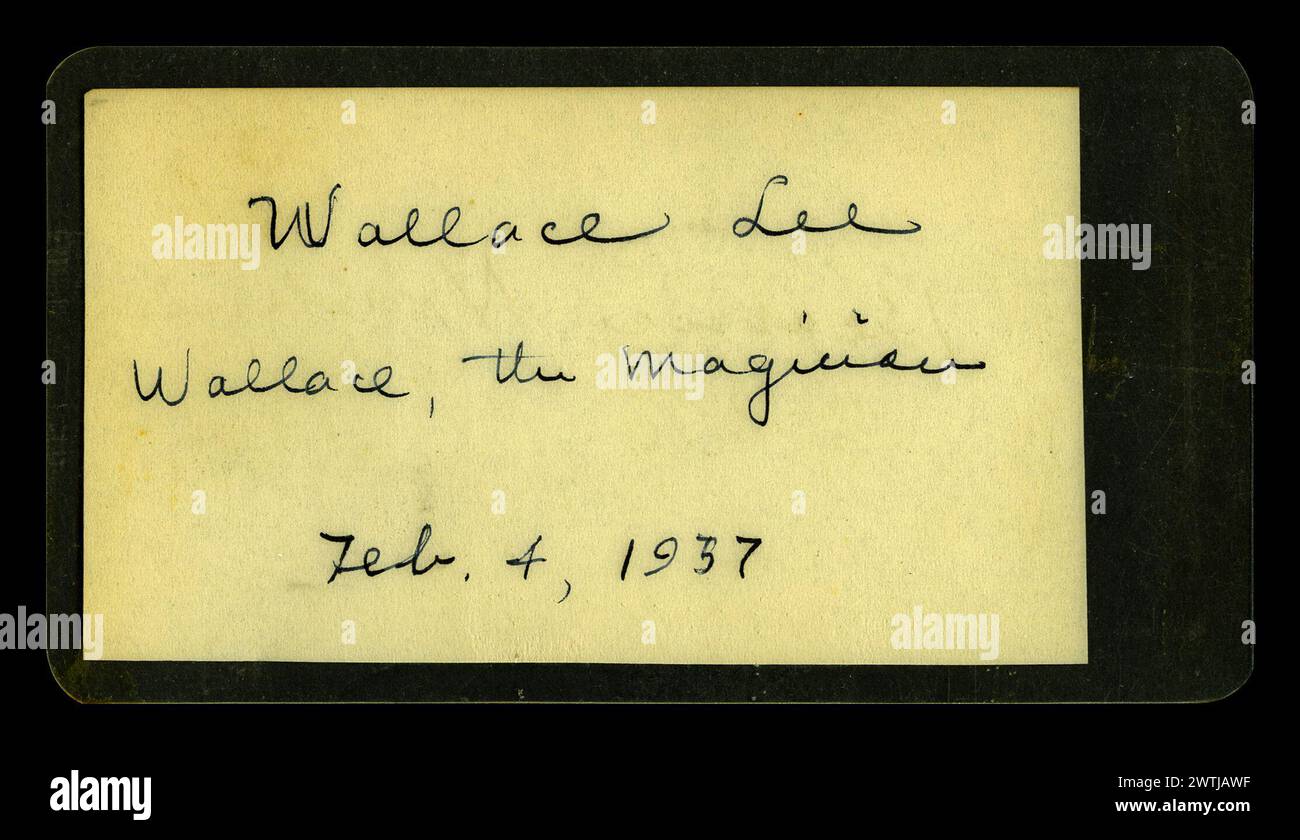 Wallace Lee
Wallace, the Magician
Feb. 4, 1937
a
a
a
a
alamy
alamy
a
a
a
a
a
alamy
a
a
alamy
a
alamy
Image ID: 2WTJAWF
www.alamy.com